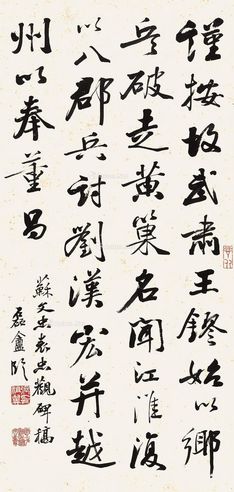 謹按故武肅王鏐始以鄉
兵破走黄巢名聞江淮復
以八郡兵討劉漢宏并越
州以奉董昌
蘇文忠表忠觀碑稿
磊盦臨